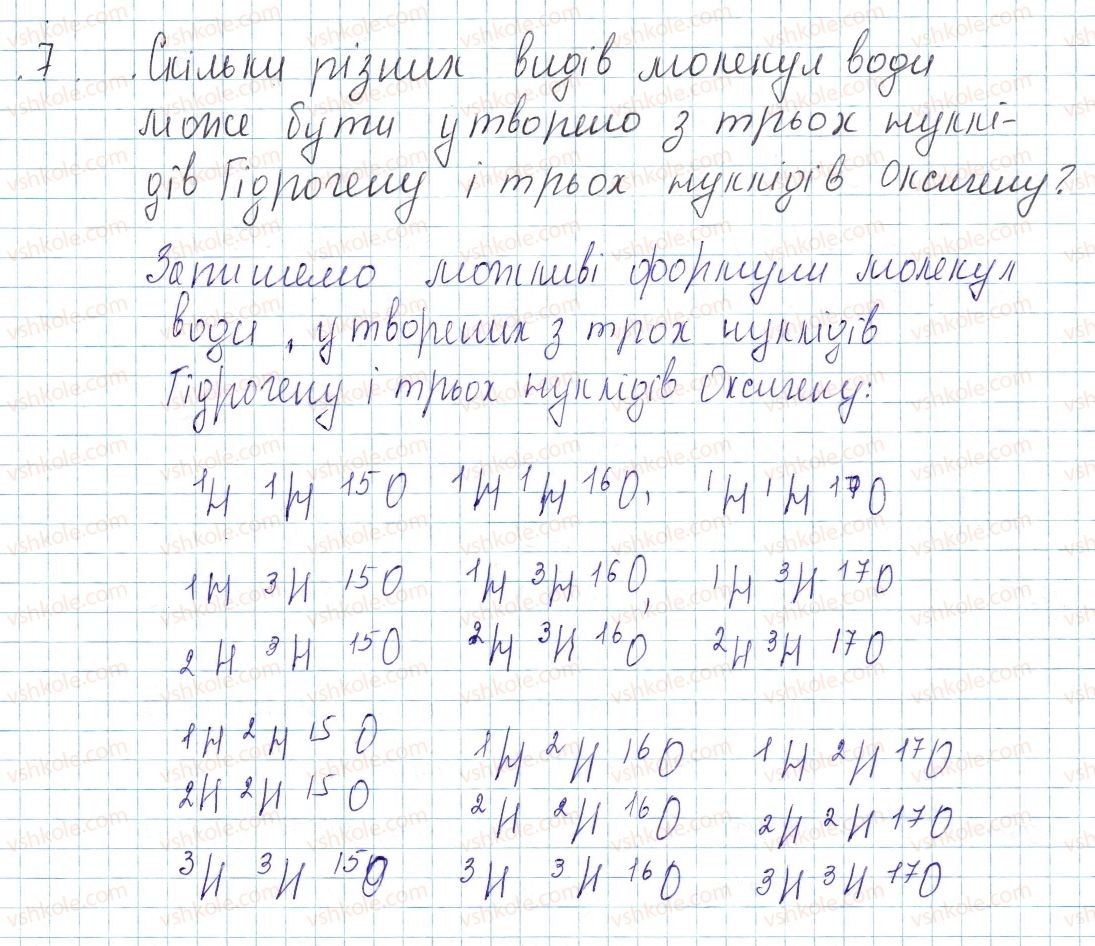 7. Скільки різних видів молекул води
може бути утворено з трьох нуклі-
дів Гідрогену і трьох нуклідів Оксигену?
Запишемо можливі формули молекул
води, утворених з трох нуклідів
Гідрогену і трьох нуклідів Оксигену:
¹H ¹H ¹⁵O ¹H ¹H ¹⁶O, ¹H ¹H ¹⁷O
¹H ³H ¹⁵O ¹H ³H ¹⁶O, ¹H ³H ¹⁷O
²H ³H ¹⁵O ²H ³H ¹⁶O ²H ³H ¹⁷O
¹H ²H ¹⁵O ¹H ²H ¹⁶O ¹H ²H ¹⁷O
²H ²H ¹⁵O ²H ²H ¹⁶O ²H ²H ¹⁷O
³H ³H ¹⁵O ³H ³H ¹⁶O ³H ³H ¹⁷O